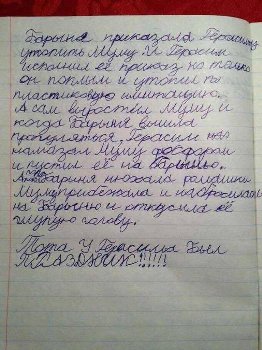 Барыня приказала Герасиму
утопить Муму. И Герасим
исполнил её приказ но только
он поплыл и утопил
пластиковую имитацию.
А сам вырастил Муму и
когда Барыня вышла
прогуляться, Герасим
намазал Муму фосфором
и пустил её на Барыню.
А Барыня нюхала ромашки
Муму прибежала и набросилась
на Барыню и откусила её
глупую голову.
Тота У Герасима был
ПРАЗДНИК!!!!!